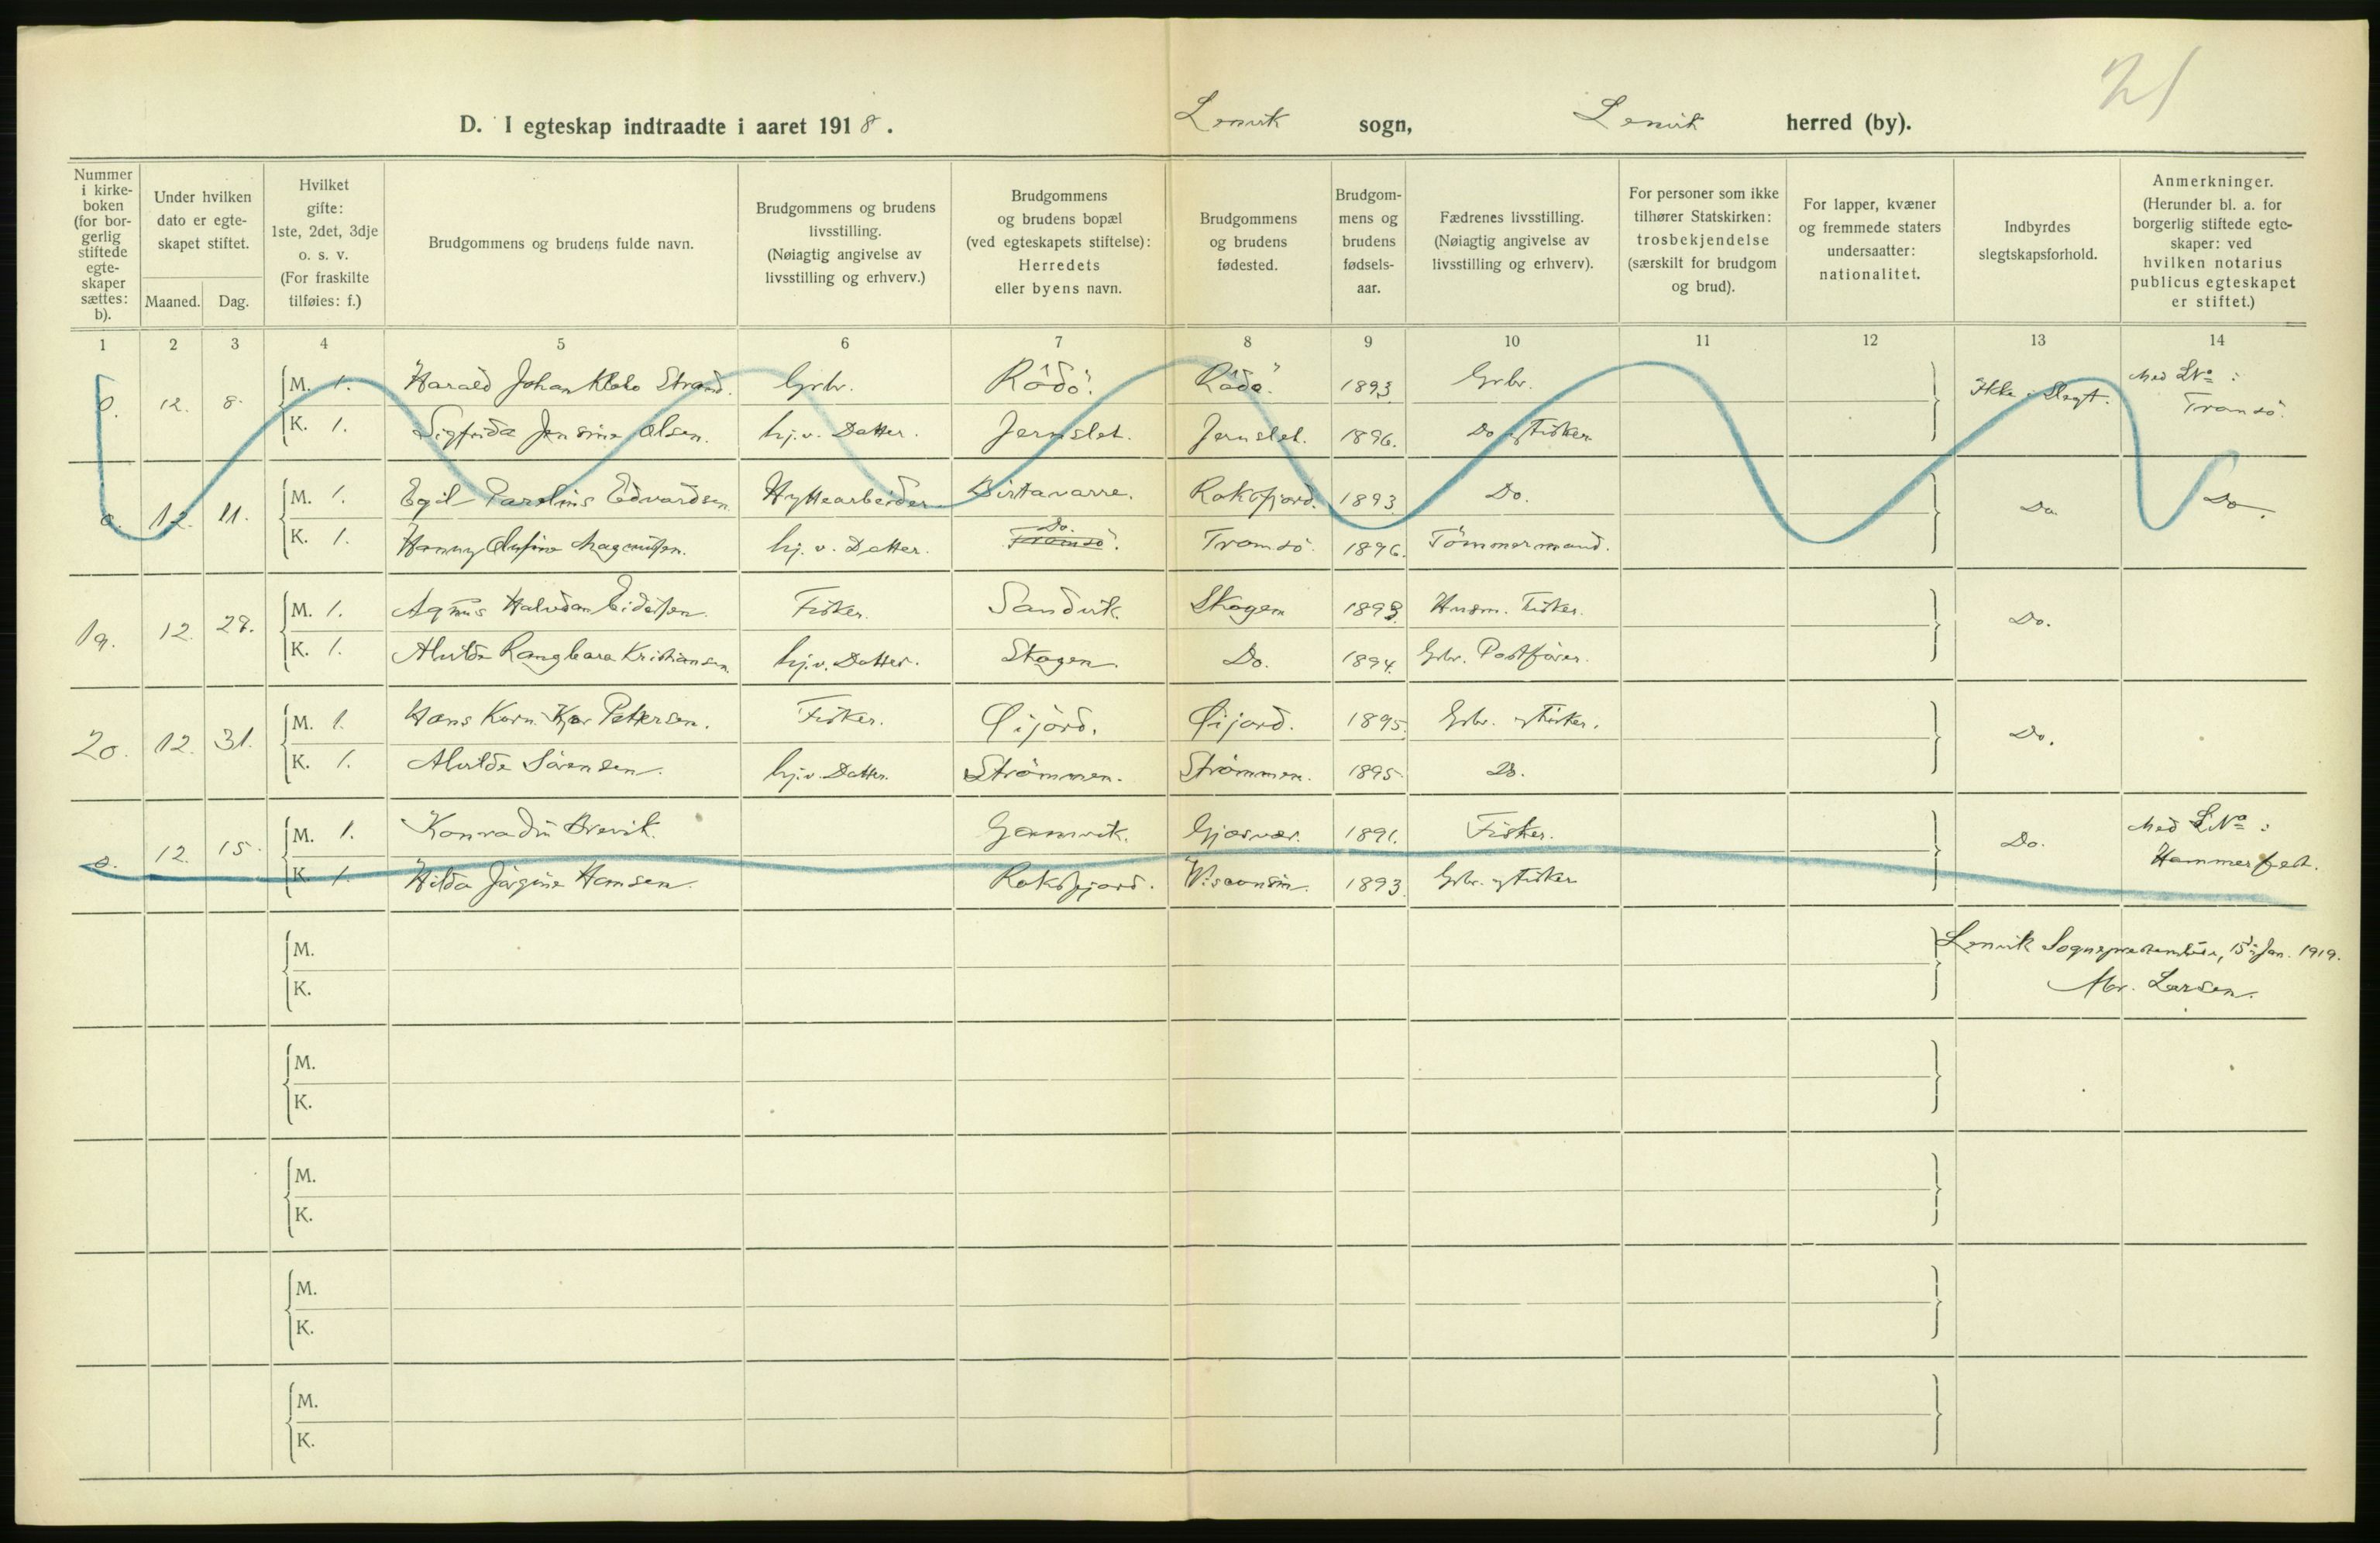 21
D. I egteskap indtraadte i aaret 1918. Lenvik sogn, Lenvik herred (by).
Nummer i kirke- boken (for bor- gerlig stiftede egte- skaper sættes: b).
Under hvilken dato er egte- skapet stiftet.
Maaned. Dag.
Hvilket gifte: 1ste, 2det, 3dje o. s. v. (For fraskilte tilføies: f.)
Brudgommens og brudens fulde navn.
Brudgommens og brudens livsstilling. (Nøiagtig angivelse av livsstilling og erhverv.)
Brudgommens og brudens bopæl (ved egteskapets stiftelse): Herredets eller byens navn.
Brudgommens og brudens fødested.
Brudgom- mens og brudens fødsels- aar.
Fædrenes livsstilling. (Nøiagtig angivelse av livsstilling og erhverv).
For personer som ikke tilhører Statskirken: trosbekjendelse (særskilt for brudgom og brud).
For lapper, kvæner og fremmede staters undersaatter: nationalitet.
Indbyrdes slegtskapsforhold.
Anmerkninger. (Herunder bl. a. for borgerlig stiftede egte- skaper: ved hvilken notarius publicus egteskapet er stiftet.)
1 2 3 4 5 6 7 8 9 10 11 12 13 14
0. 12. 8. M. 1. Harald Johan Strand. Grbr. Rödö. Rödö. 1893. Grbr. Ikke i Slegt. Med LNo: Tromsö.
K. 1. Sigfrida Jensine Olsen. hj.v. Datter. Jernslet. Jernslet. 1896. Do og Fisker.
0. 12. 11. M. 1. Egil Parelius Edvardsen. Hyttearbeider Birtavarre. Roksfjord. 1893. Do. Do. Do.
K. 1. Hanny Olufine Magnussen. hj. v. Datter. Do. Tromsö. Tromsö. 1896. Tömmermand.
19. 12. 28. M. 1. Agnus Halvdan Eidissen. Fisker. Sandvik. Skogen 1893. Husm. Fisker. Do.
K. 1. Alvilde Kristiansen. hj.v. Datter. Skogen. Do. 1894. Grbr. Postförer.
20. 12. 31. M. 1. Hans Korn. Pettersen. Fisker. Öijord. Öijord. 1895. Grbr. og Fisker. Do.
K. 1. Alvilde Sörensen. hj.v. Datter. Strömmen. Strömmen. 1895. Do.
0. 12. 15. M. 1. Konradin Brevik. Gamvik. Gjæsvær. 1891. Fisker. Do. Med LNo: Hammerfest.
K. 1. Hilda Jörgine Hansen. Roksfjord. Wisconsin. 1893. Grbr. og Fisker
M.
K.
Lenvik Sogneprestembede, 15de Jan. 1919.
Larsen.
M.
K.
M.
K.
M.
K.
M.
K.